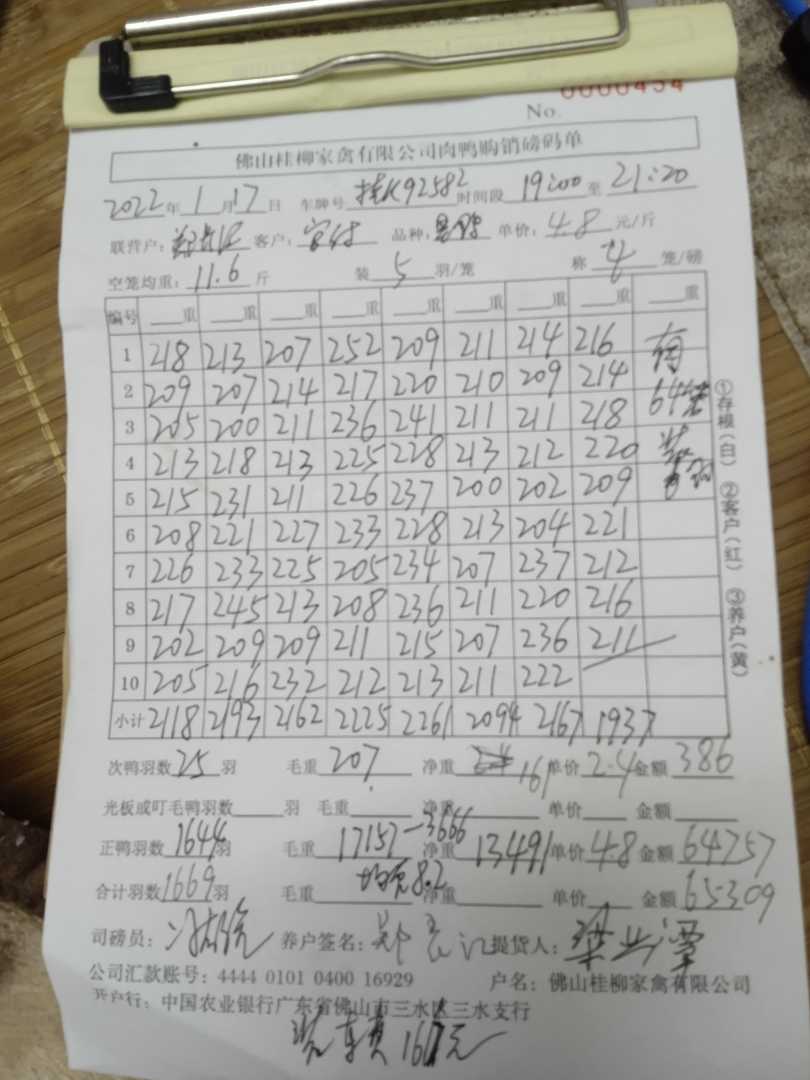 No. 0000454
佛山桂柳家禽有限公司肉鸭购销磅码单
2022年1月17日 车牌号 桂K92582 时间段 19:00 至 21:20
联营户: 客户: 品种: 单价: 4.8 元/斤
空笼均重: 11.6 斤 装 5 羽/笼 称 4 笼/磅
编号 重 重 重 重 重 重 重 重 重
1 218 213 207 252 209 211 214 216
2 209 207 214 217 220 210 209 214
3 205 200 211 236 241 211 211 218
4 213 218 213 225 228 213 212 220
5 215 231 211 226 237 200 202 209
6 208 221 227 233 228 213 204 221
7 226 233 225 205 234 207 237 212
8 217 245 213 208 236 211 220 216
9 202 209 209 211 215 207 236 211
10 205 216 232 212 213 211 222
小计 2118 2193 2162 2225 2261 2094 2167 1937
①存根(白) ②客户(红) ③养户(黄)
次鸭羽数 25 羽 毛重 207 净重 161 单价 2.4 金额 386
光板或叮毛鸭羽数 羽 毛重 净重 单价 金额
正鸭羽数 1644 羽 毛重 17157-3666 净重 13491 单价 4.8 金额 64757
合计羽数 1669 羽 毛重 均重8.2 净重 单价 金额 65309
司磅员: 养户签名: 提货人:
公司汇款账号: 4444 0101 0400 16929 户名: 佛山桂柳家禽有限公司
开户行: 中国农业银行广东省佛山市三水区三水支行
装车费167元